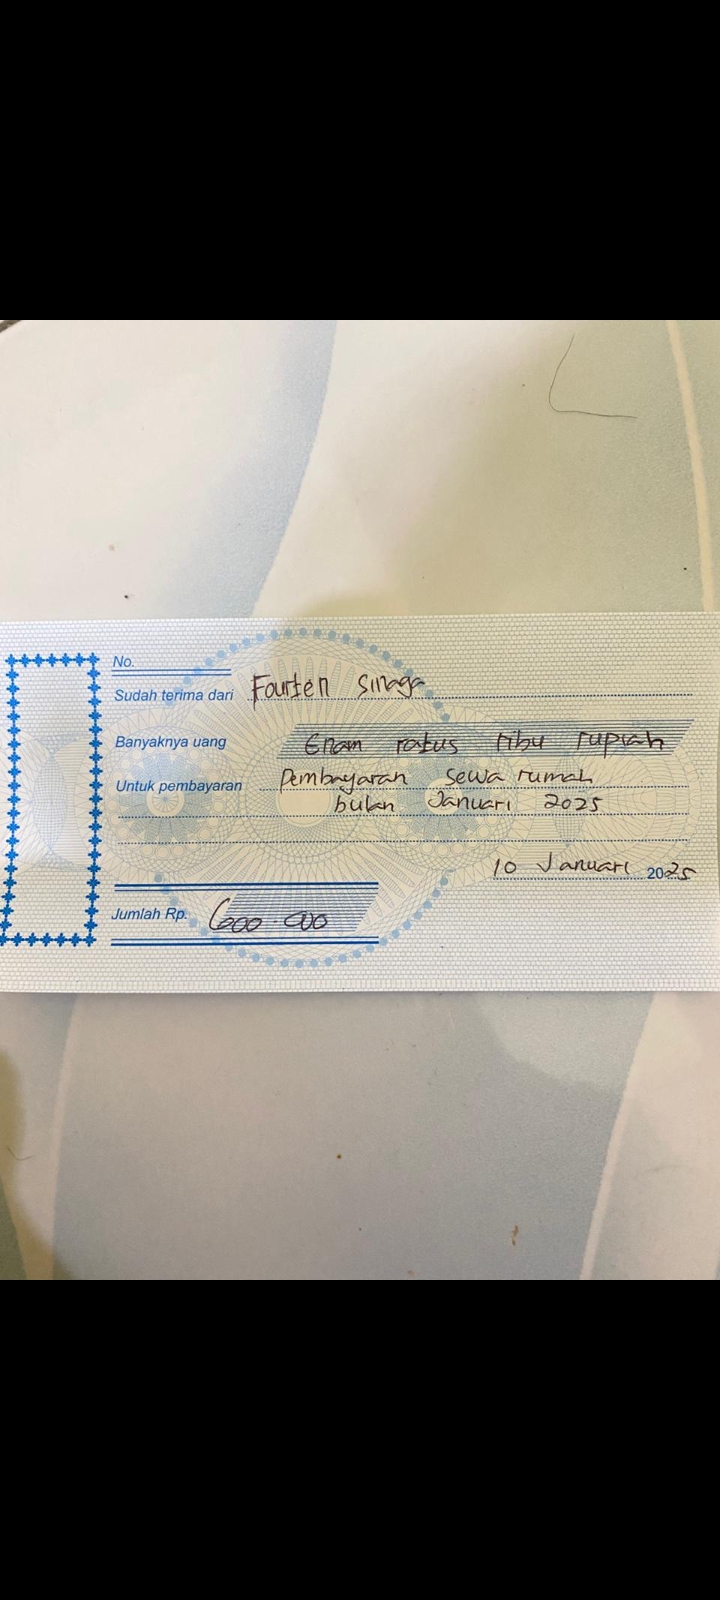 No.
Sudah terima dari Fourten Sinaga
Banyaknya uang Enam ratus ribu rupiah
Untuk pembayaran Pembayaran sewa rumah
bulan Januari 2025
10 Januari 2025
Jumlah Rp. 600.000